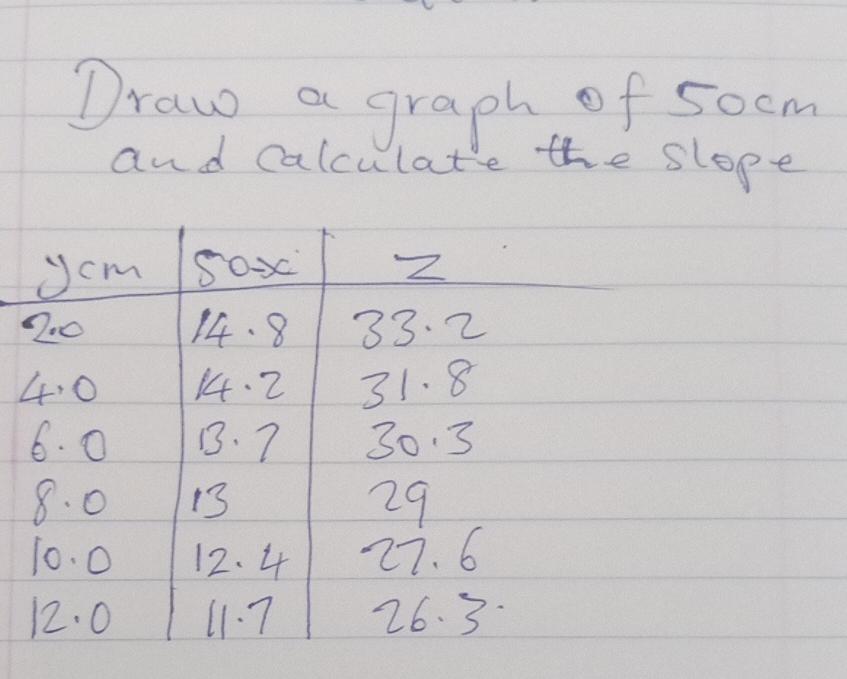 Draw a graph of 50cm
and calculate the slope
ycm 50-x Z
2.0 14.8 33.2
4.0 14.2 31.8
6.0 13.7 30.3
8.0 13 29
10.0 12.4 27.6
12.0 11.7 26.3